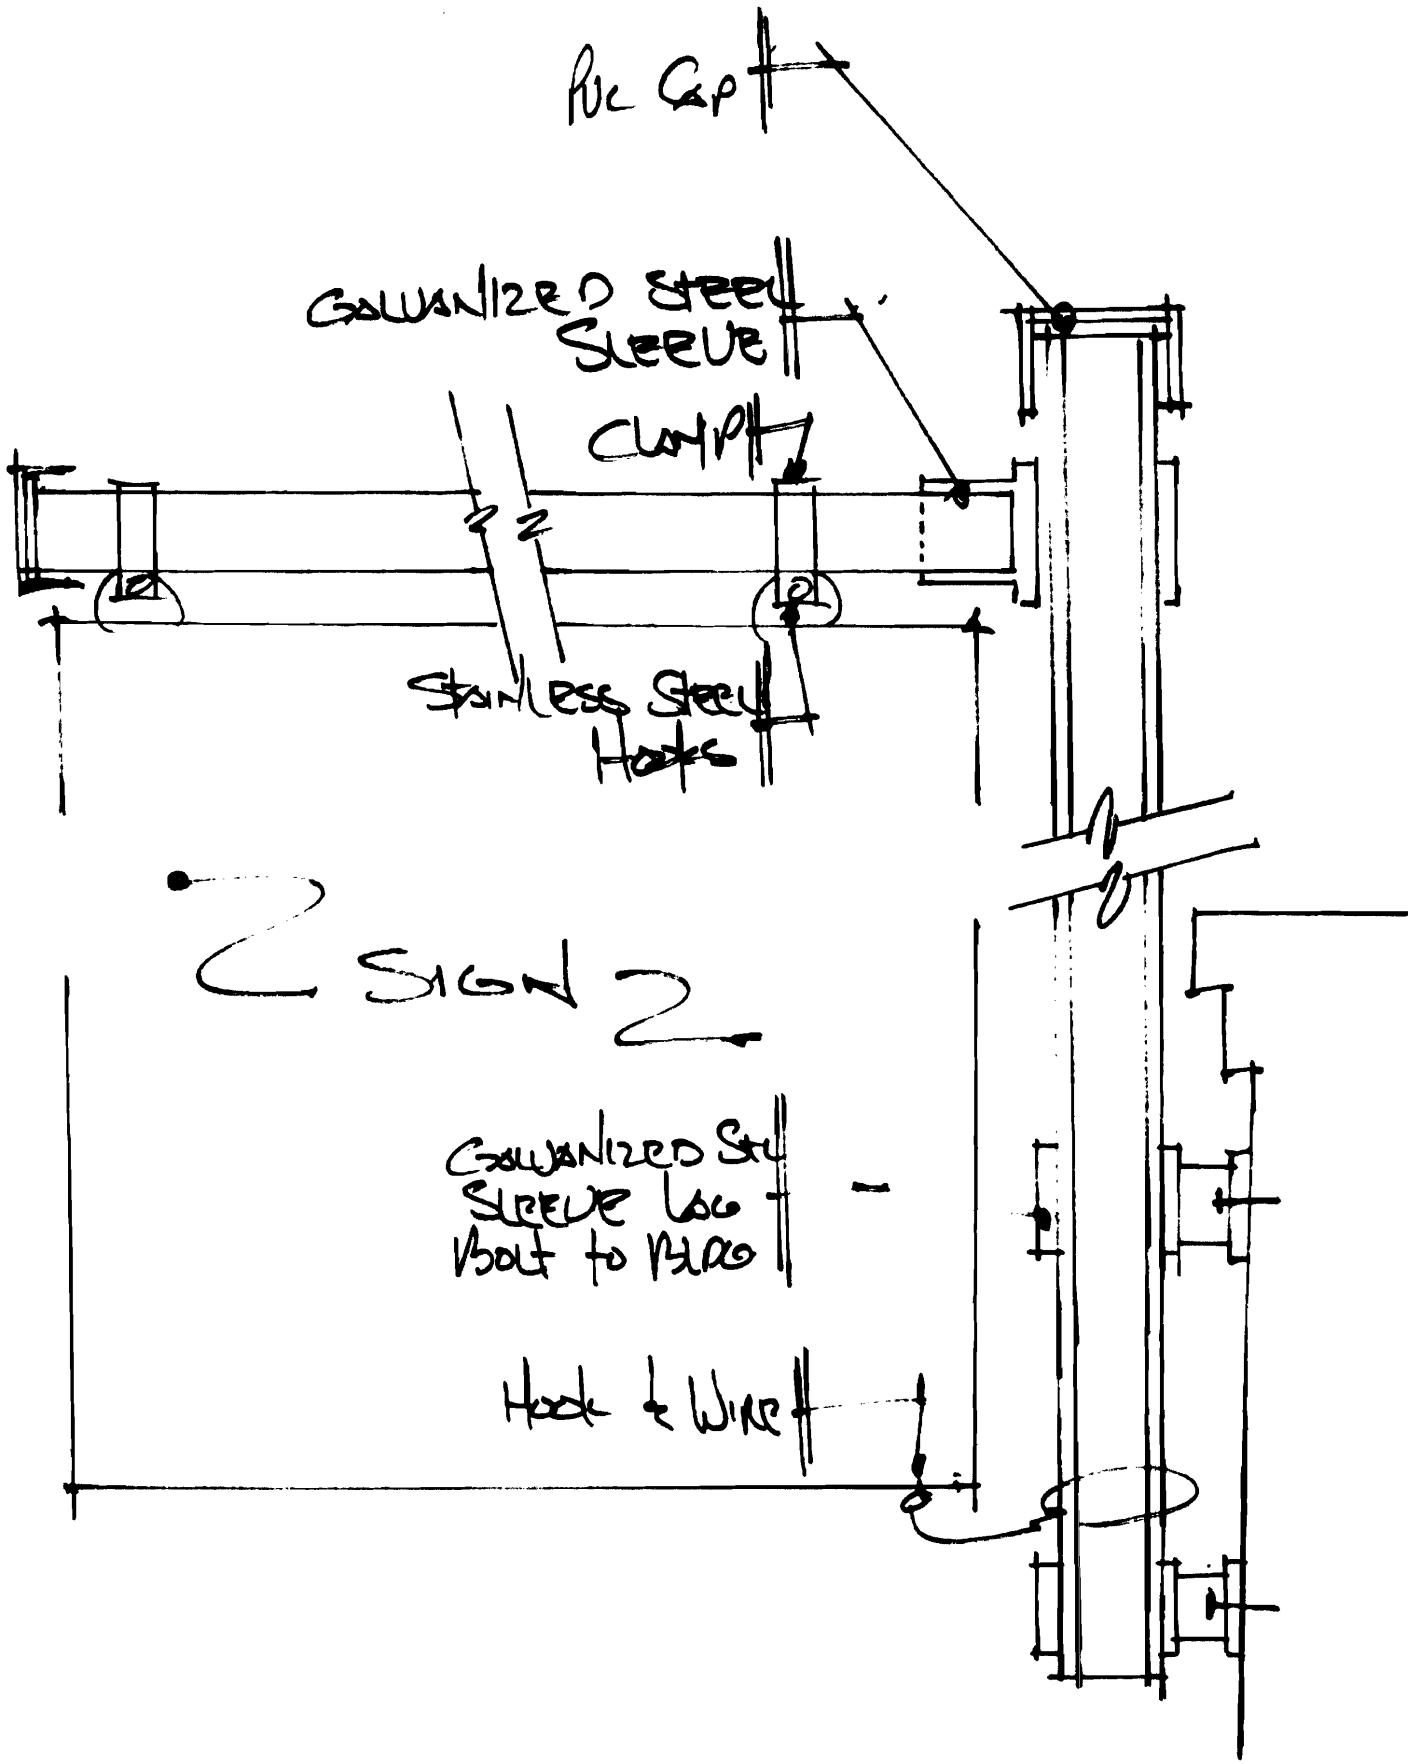 PVC CAP
GALVANIZED STEEL
SLEEVE
CLAMP
STAINLESS STEEL
HOOKS
SIGN
GALVANIZED STL
SLEEVE LAG
BOLT to BLDG
HOOK & WIRE